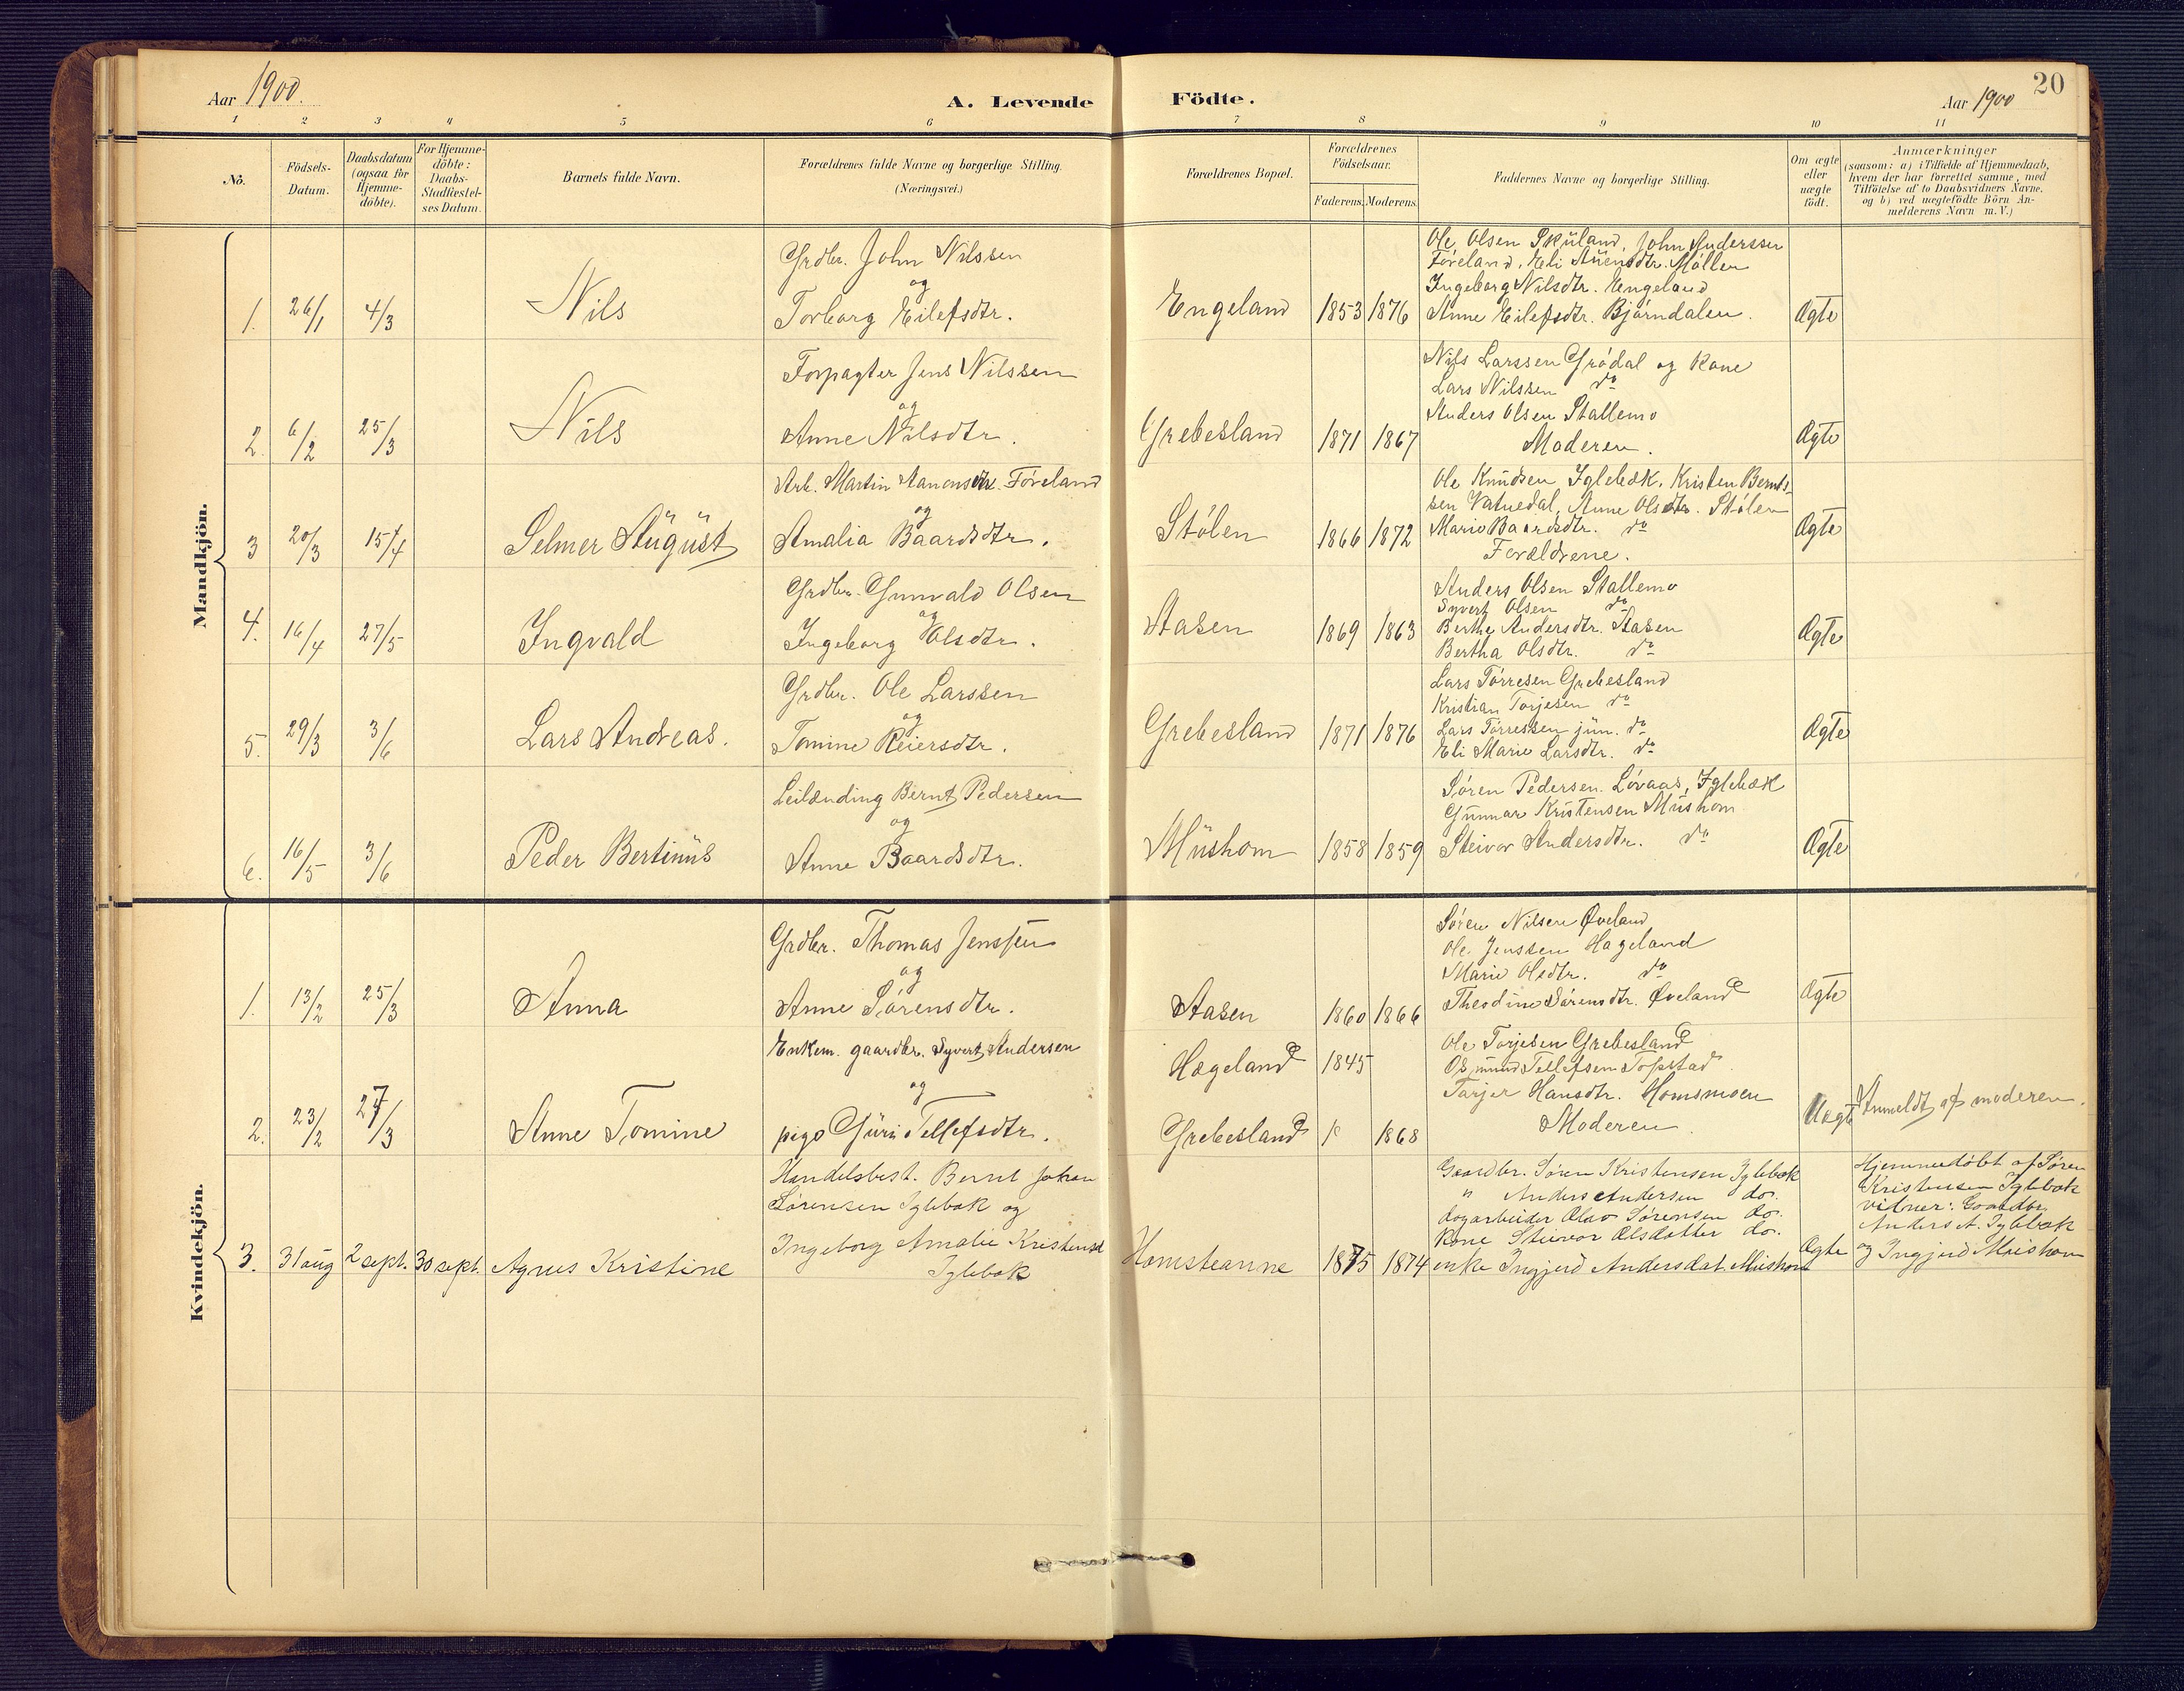 Aar 1900. A. Levende Födte. Aar 1900 20
1 2 3 4 5 6 7 8 9 10 11
No. Födsels-Datum. Daabsdatum (ogsaa for Hjemmedöbte). For Hjemmedöbte: Daabs-Stadfæstelses Datum. Barnets fulde Navn. Forældrenes fulde Navne og borgerlige Stilling. (Næringsvei.) Forældrenes Bopæl. Forældrenes Födselsaar. Faderens. Moderens. Faddernes Navne og borgerlige Stilling. Om ægte eller uægte födt. Anmærkninger (saasom: a) i Tilfælde af Hjemmedaab, hvem der har forrettet samme, med Tilföielse af to Daabsvidners Navne. og b) ved uægtefödte Börn Anmelderens Navn m.V.)
Mandkjön.
Grdbr. John Nilssen
og
1. 26/1 4/3 Nils Torborg Eilefsdtr. Engeland 1853 1876
Ole Olsen Skuland, John Anderssen
Föreland, Eli Auensdtr. Möllen
Ingeborg Nilsdtr. Engeland
Anne Eilefsdtr. Bjørndalen. Ægte
Forpagter Jens Nilssen
og
2. 6/2 25/3 Nils Anne Nilsdtr. Grebesland 1871 1867
Nils Larssen Grödal og Kone
Lars Nilssen do
Anders Olsen Stallemo
Moderen. Ægte
Arb. Martin Aanons Föreland
og
3 20/3 15/4 Selmer August Amalia Baardsdtr. Stölen 1866 1872
Ole Knudsen Iglebæk, Kristen Berntssen Vatnedal, Anne Olsdtr. Stölen
Marie Baardsdtr. do
Forældrene. Ægte
Grdbr. Gunvald Olsen
og
4. 16/4 27/5 Ingvald Ingeborg Olsdtr. Aasen 1869 1863
Anders Olsen Stallemo
Syvert Olsen do
Berthe Andersdtr. Aasen
Bertha Olsdtr. do Ægte
Grdbr. Ole Larssen
og
5. 29/3 3/6 Lars Andreas. Tomine Reiersdtr. Grebesland 1871 1876
Lars Törresen Grebesland
Kristian Torjesen do
Lars Törressen jun. do
Eli Marie Larsdtr. do Ægte
Leilænding Bernt Pedersen
og
6. 16/5 3/6 Peder Bertinus Anne Baardsdtr. Mushom 1858 1859
Sören Pedersen Lövaas, Iglebæk
Gunnar Kristensen Mushom
Steivor Andersdtr. do Ægte
Kvindekjön.
Grdbr. Thomas Jenssen
og
1. 13/2 25/3 Anna Anne Sörensdtr. Aasen 1860 1866
Sören Nilsen Øveland
Ole Jenssen Hageland
Marie Olsdtr. do
Theodine Sörensdtr. Øveland Ægte
Enkem. gaardbr. Syvert Andersen Hægeland 1845
og
2. 23/2 27/3 Anne Tomine pige Guri Tellefsdtr. Grebesland 1868
Ole Torjesen Grebesland
Osmund Tellefsen Topstad
Tarjer Hansdtr. Homsmoen
Moderen. Uægte Anmeldt af moderen.
Handelsbest. Bernt Johan
Sörensen Iglebæk og
Ingeborg Amalie Kristensd
Iglebæk
3. 31 aug 2 sept. 30 sept. Agnes Kristine Homsteanne 1875 1874
Gaardbr. Sören Kristensen Iglebæk
" Anders Andersen do.
dagarbeider Olav Sörensen do.
Kone Steivor Olsdatter do.
enke Ingjerd Andersdat. Mushom Ægte
Hjemmedöbt af Sören
Kristensen Iglebæk
vitner: Gaardbr.
Anders A. Iglebæk
og Ingjerd Mushom